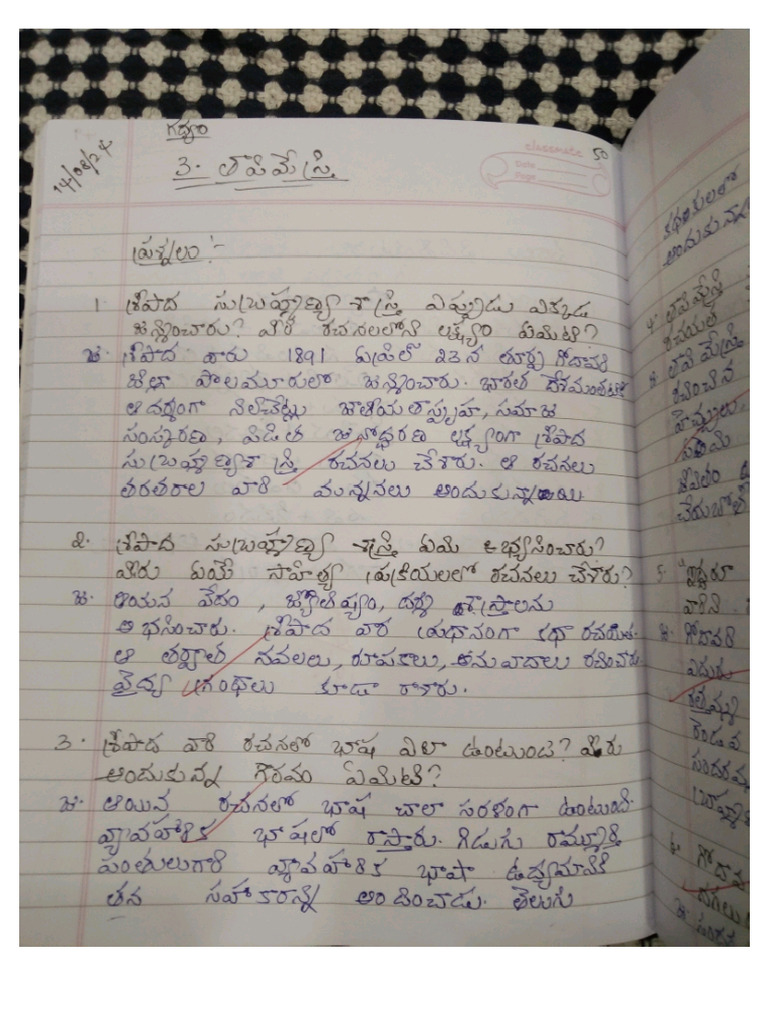 14/08/24
గద్యం
CLASSMATE
Date
Page
50
3. తాపీమేస్త్రి
ప్రశ్నలు :-
1. శ్రీపాద సుబ్రహ్మణ్యా శాస్త్రి ఎప్పుడు ఎక్కడ
జన్మించారు? వారి రచనలలోని లక్ష్యం ఏమిటి?
జ. శ్రీపాద వారు 1891 ఏప్రిల్ 23న తూర్పు గోదావరి
జిల్లా పొలమూరులో జన్మించారు. భారత దేశమంతటికి
ఆదర్శంగా నిలిచేట్లు జాతీయతాస్పృహ, సమాజ
సంస్కరణ, పీడిత జనోద్ధరణ లక్ష్యంగా శ్రీపాద
సుబ్రహ్మణ్యశాస్త్రి రచనలు చేశారు. ఆ రచనలు
తరతరాల వారి మన్ననలు అందుకున్నాయి.
2. శ్రీపాద సుబ్రహ్మణ్యా శాస్త్రి ఏమి అభ్యసించారు?
వీరు ఏయే సాహిత్య ప్రక్రియలలో రచనలు చేశారు?
జ. ఆయన వేదం, జ్యోతిష్యం, ధర్మ శాస్త్రాలను
అభసించారు. శ్రీపాద వారు ప్రధానంగా కథా రచయిత.
ఆ తర్వాత నవలలు, రూపకాలు, అనువాదాలు రచించారు.
వైద్య గ్రంథాలు కూడా రాశారు.
3. శ్రీపాద వారి రచనలో భాష ఎలా ఉంటుంది? వీరు
అందుకున్న గౌరవం ఏమిటి?
జ. ఆయన రచనలో భాష చాలా సరళంగా ఉంటుంది.
వ్యావహారిక భాషలో రాస్తారు. గిడుగు రామ్మూర్తి
పంతులుగారి వ్యావహారిక భాషా ఉద్యమానికి
తన సహకారాన్ని అందించాడు. తెలుగు